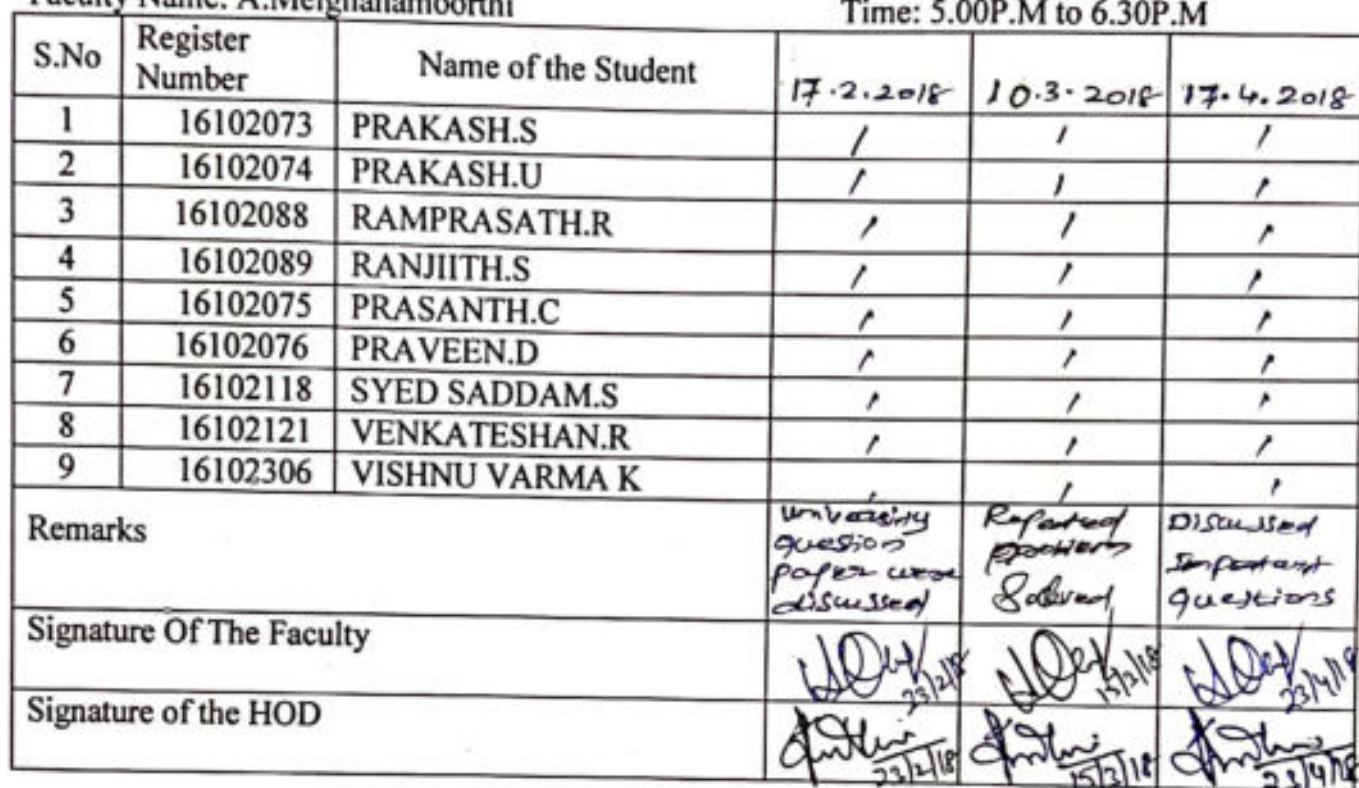 Faculty Name: A.Meignanamoorthi Time: 5.00P.M to 6.30P.M
S.No Register Number Name of the Student 17.2.2018 10.3.2018 17.4.2018
1 16102073 PRAKASH.S / / /
2 16102074 PRAKASH.U / / /
3 16102088 RAMPRASATH.R / / /
4 16102089 RANJIITH.S / / /
5 16102075 PRASANTH.C / / /
6 16102076 PRAVEEN.D / / /
7 16102118 SYED SADDAM.S / / /
8 16102121 VENKATESHAN.R / / /
9 16102306 VISHNU VARMA K / / /
Remarks
University question paper were discussed
Repeated problems Solved
Discussed Important questions
Signature Of The Faculty 23/2/18 15/3/18 23/4/18
Signature of the HOD 23/2/18 15/3/18 23/4/18